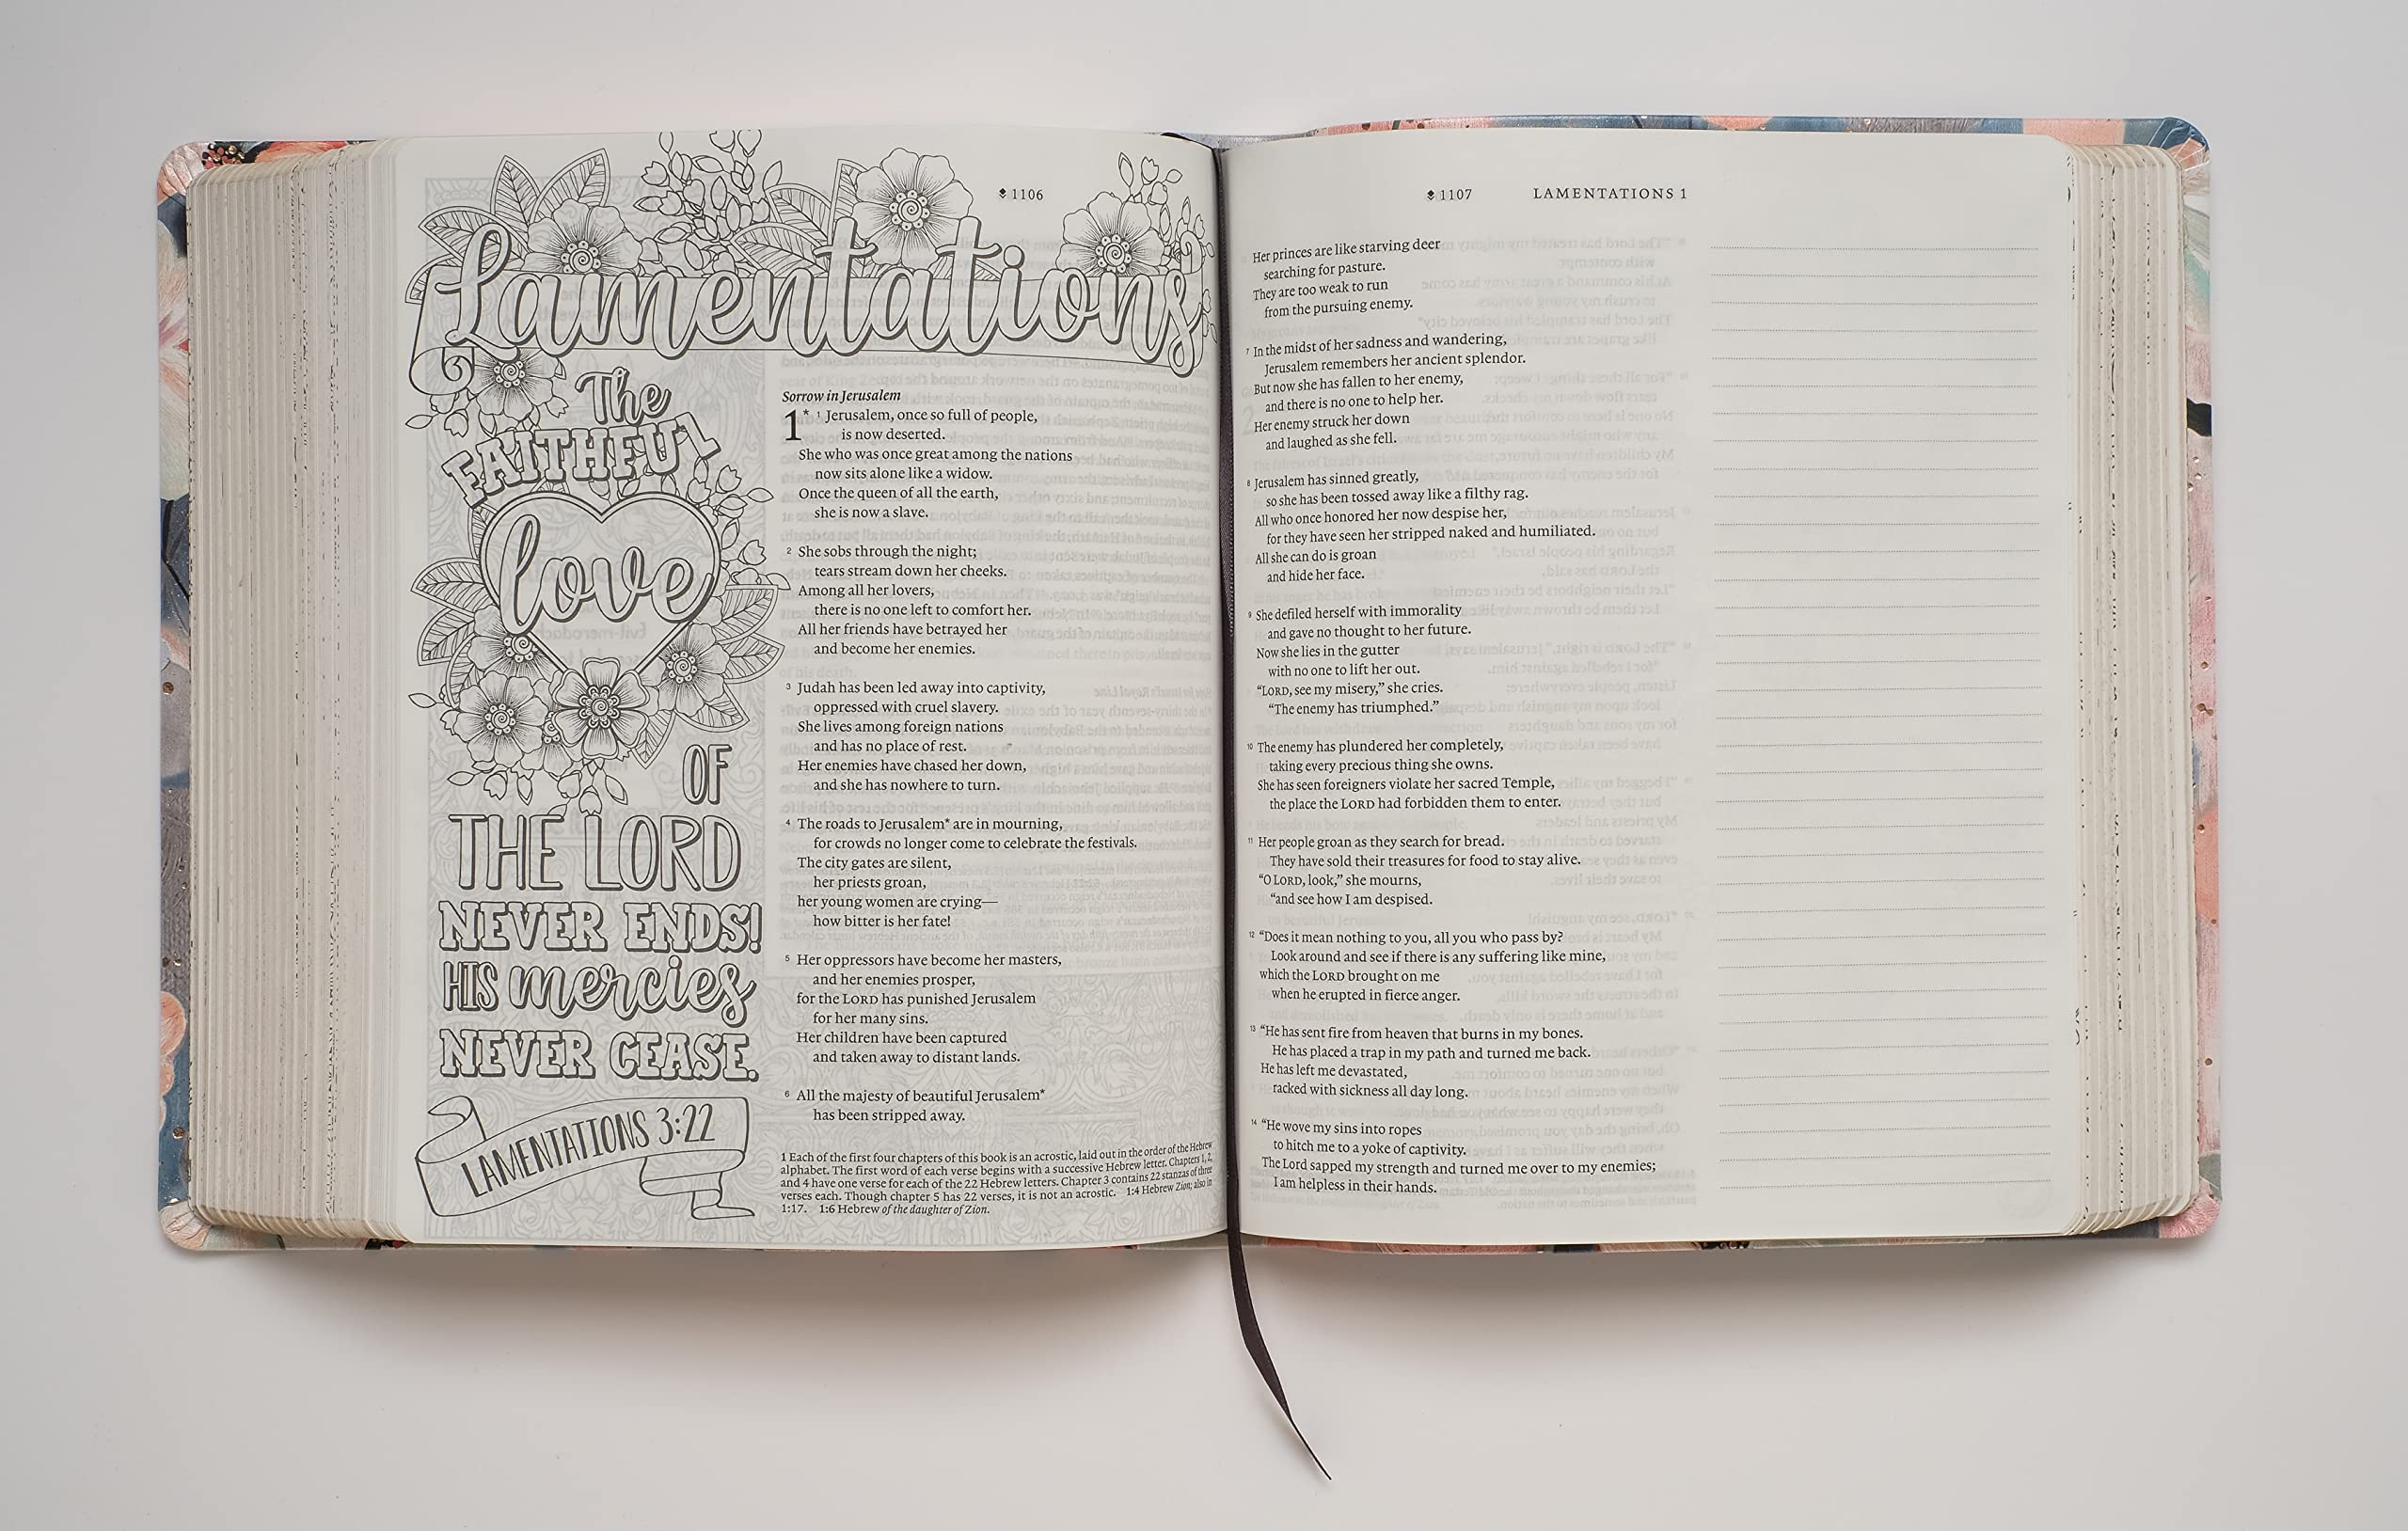 1106
Lamentations
The
FAITHFUL
love
OF
THE LORD
NEVER ENDS!
HIS mercies
NEVER CEASE.
LAMENTATIONS 3:22
Sorrow in Jerusalem
1 * 1 Jerusalem, once so full of people,
is now deserted.
She who was once great among the nations
now sits alone like a widow.
Once the queen of all the earth,
she is now a slave.
2 She sobs through the night;
tears stream down her cheeks.
Among all her lovers,
there is no one left to comfort her.
All her friends have betrayed her
and become her enemies.
3 Judah has been led away into captivity,
oppressed with cruel slavery.
She lives among foreign nations
and has no place of rest.
Her enemies have chased her down,
and she has nowhere to turn.
4 The roads to Jerusalem* are in mourning,
for crowds no longer come to celebrate the festivals.
The city gates are silent,
her priests groan,
her young women are crying—
how bitter is her fate!
5 Her oppressors have become her masters,
and her enemies prosper,
for the LORD has punished Jerusalem
for her many sins.
Her children have been captured
and taken away to distant lands.
6 All the majesty of beautiful Jerusalem*
has been stripped away.
1 Each of the first four chapters of this book is an acrostic, laid out in the order of the Hebrew
alphabet. The first word of each verse begins with a successive Hebrew letter. Chapters 1, 2,
and 4 have one verse for each of the 22 Hebrew letters. Chapter 3 contains 22 stanzas of three
verses each. Though chapter 5 has 22 verses, it is not an acrostic. 1:4 Hebrew Zion; also in
1:17. 1:6 Hebrew of the daughter of Zion.
1107 LAMENTATIONS 1
Her princes are like starving deer
searching for pasture.
They are too weak to run
from the pursuing enemy.
7 In the midst of her sadness and wandering,
Jerusalem remembers her ancient splendor.
But now she has fallen to her enemy,
and there is no one to help her.
Her enemy struck her down
and laughed as she fell.
8 Jerusalem has sinned greatly,
so she has been tossed away like a filthy rag.
All who once honored her now despise her,
for they have seen her stripped naked and humiliated.
All she can do is groan
and hide her face.
9 She defiled herself with immorality
and gave no thought to her future.
Now she lies in the gutter
with no one to lift her out.
“LORD, see my misery,” she cries.
“The enemy has triumphed.”
10 The enemy has plundered her completely,
taking every precious thing she owns.
She has seen foreigners violate her sacred Temple,
the place the LORD had forbidden them to enter.
11 Her people groan as they search for bread.
They have sold their treasures for food to stay alive.
“O LORD, look,” she mourns,
“and see how I am despised.
12 “Does it mean nothing to you, all you who pass by?
Look around and see if there is any suffering like mine,
which the LORD brought on me
when he erupted in fierce anger.
13 “He has sent fire from heaven that burns in my bones.
He has placed a trap in my path and turned me back.
He has left me devastated,
racked with sickness all day long.
14 “He wove my sins into ropes
to hitch me to a yoke of captivity.
The Lord sapped my strength and turned me over to my enemies;
I am helpless in their hands.